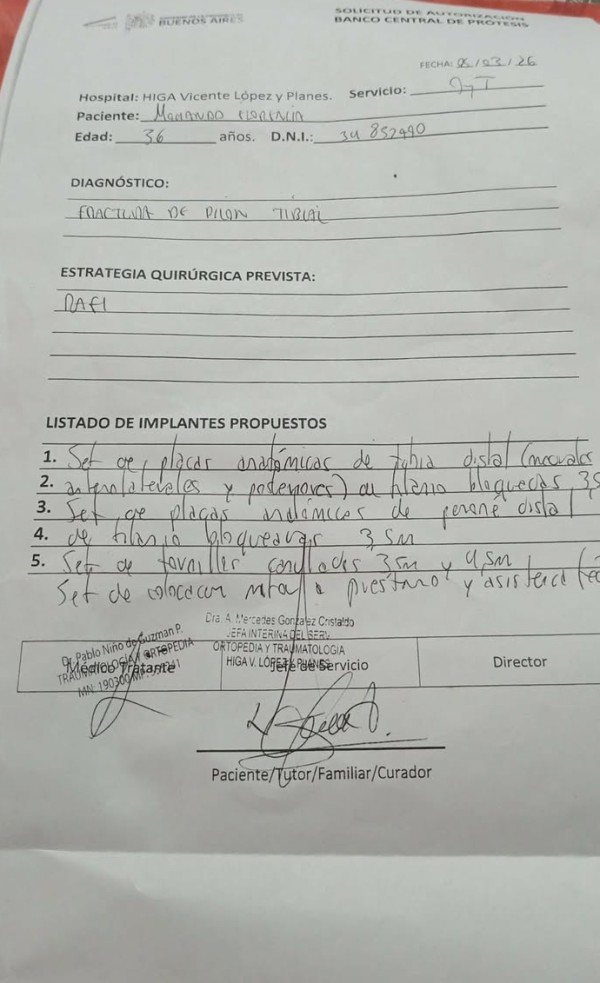 BUENOS AIRES
SOLICITUD DE AUTORIZACIÓN
BANCO CENTRAL DE PRÓTESIS
FECHA: /03/26
Hospital: HIGA Vicente López y Planes. Servicio: OyT
Paciente: FLORENCIA
Edad: 36 años. D.N.I.: 34 852490
DIAGNÓSTICO:
FRACTURA DE PILON TIBIAL
ESTRATEGIA QUIRÚRGICA PREVISTA:
RAFI
LISTADO DE IMPLANTES PROPUESTOS
1. Set de placas anatómicas de tibia distal (
2. anterolaterales y posteriores) de titanio bloqueadas 3,5
3. Set de placas anatómicas de peroné distal
4. de titanio bloqueadas 3,5m
5. Set de tornillos canulados 3,5m y 4,5m
Set de colocacion y asistencia
Dr. Pablo Niño de Guzman P.
TRAUMATOLOGÍA Y ORTOPEDIA
MN: 190300
Médico Tratante
Dra. A. Mercedes Gonzalez Cristaldo
JEFA INTERINA DEL SERV.
ORTOPEDIA Y TRAUMATOLOGIA
HIGA V. LÓPEZ Y PLANES
Jefe de Servicio
Director
Paciente/Tutor/Familiar/Curador